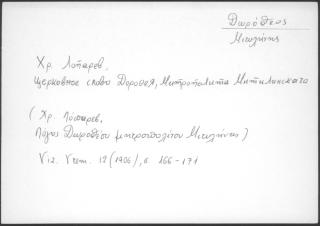 Δωρόθεος
Μιτυλήνης
Хр. Лопарев.
Церковное слово Дорофея, Митрополита Митиленскаго
(Χρ. Λόπαρεβ.
Λόγος Δωροθέου μητροπολίτου Μιτυλήνης)
Viz. Vrem. 12 (1906), σ. 166-171